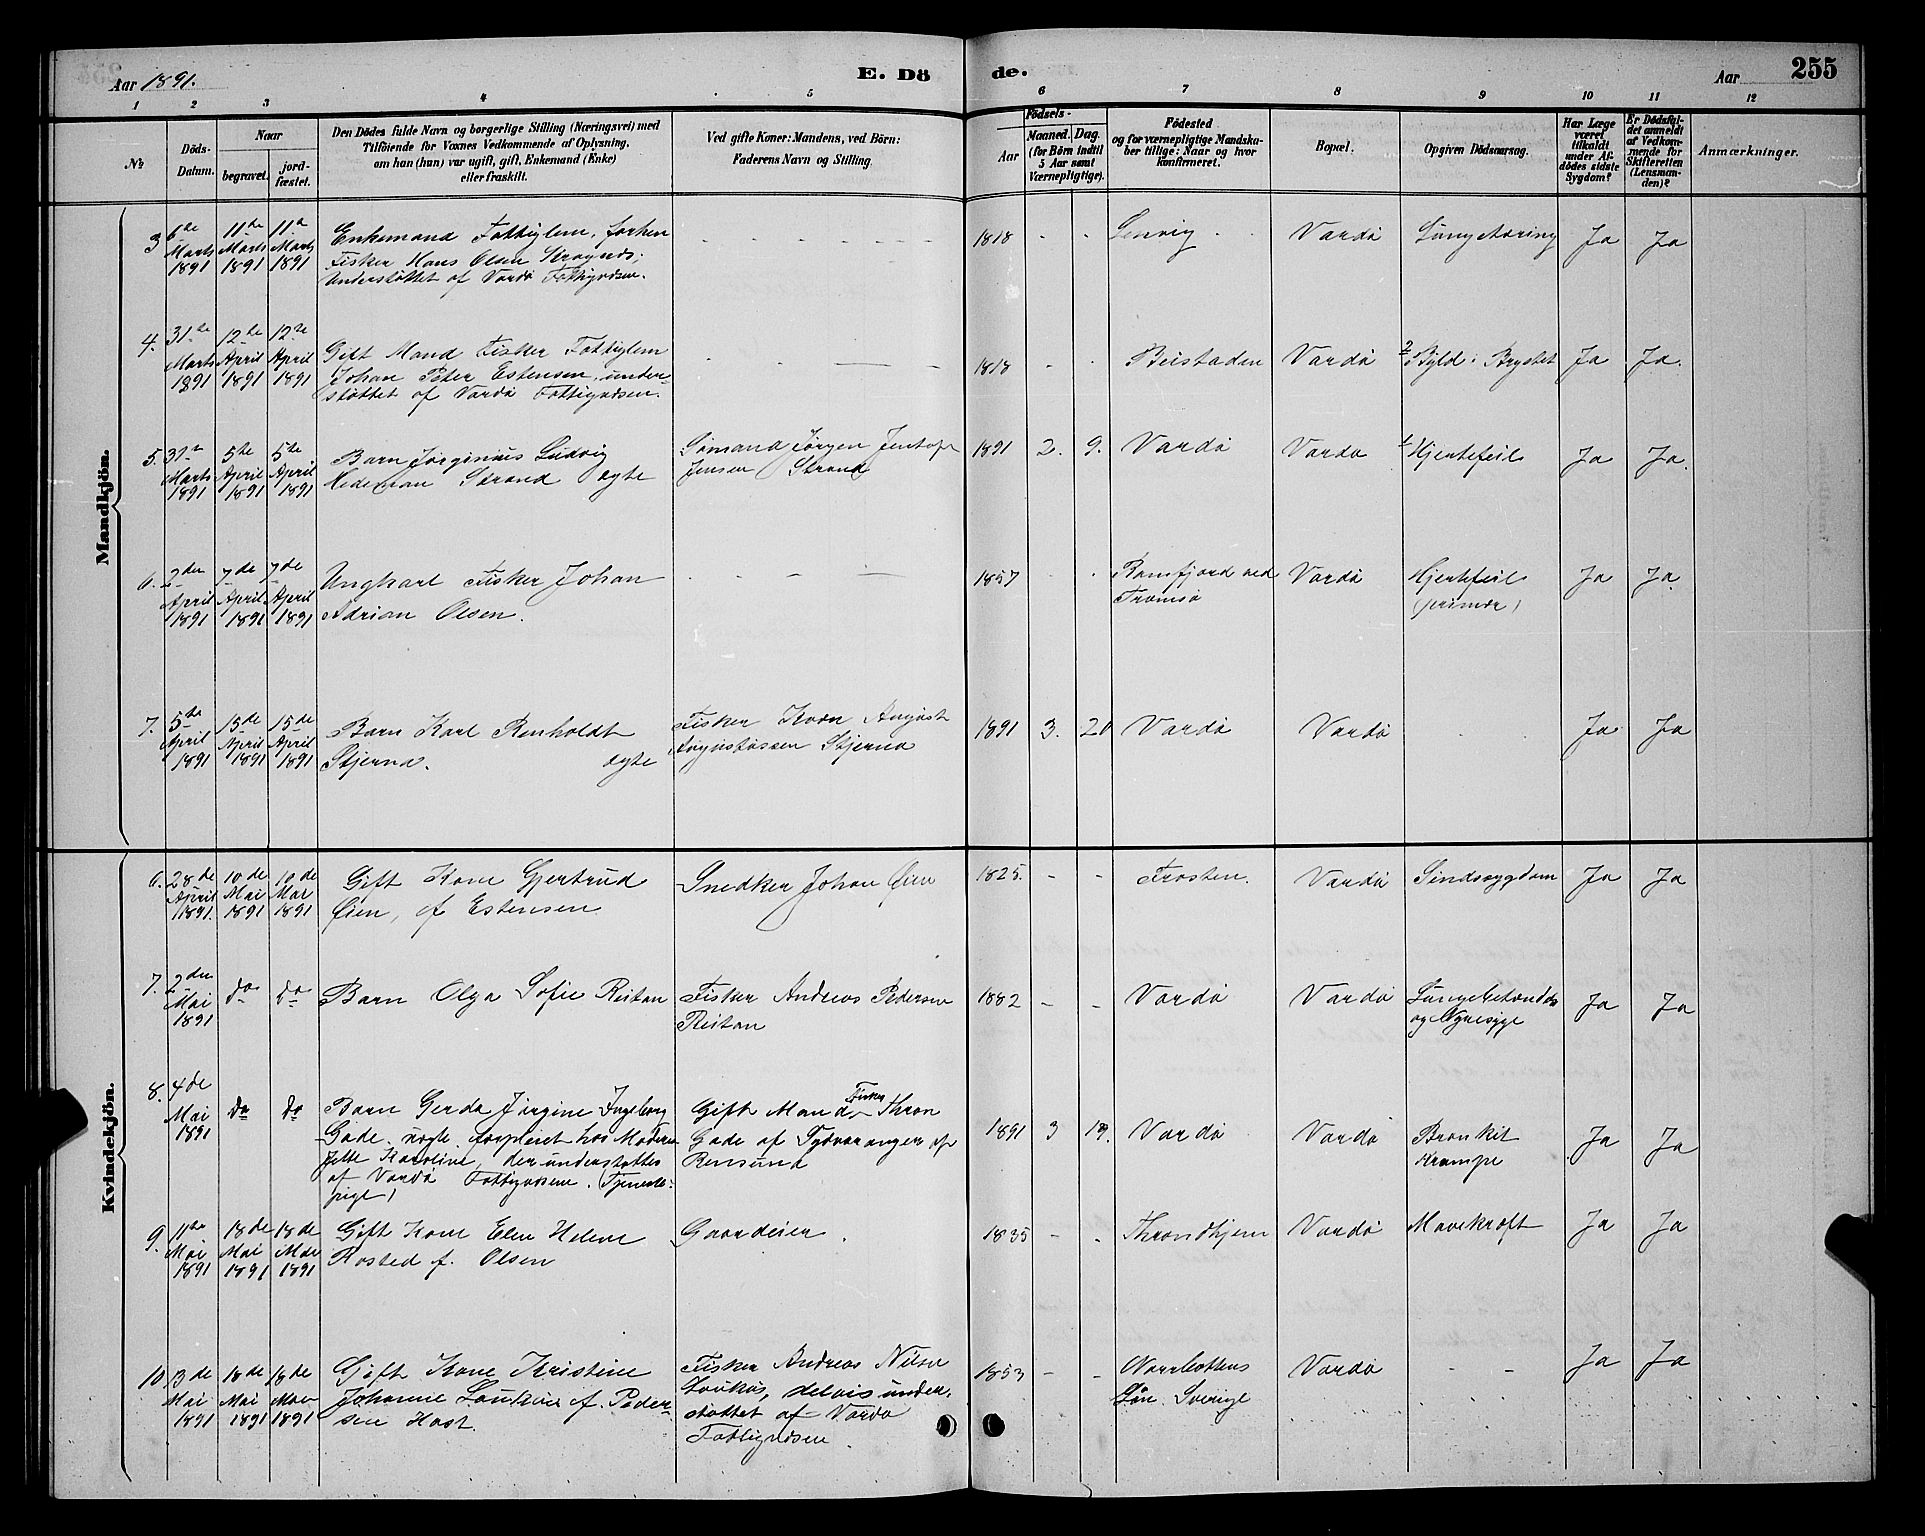 Aar 1891.
E. Dö
de.
Aar
255
1 2 3 4 5 6 7 8 9 10 11 12
No
Döds-
Datum.
Naar
begravet.
jord-
fæstet.
Den Dödes fulde Navn og borgerlige Stilling (Næringsvei) med
Tilföiende for Voxnes Vedkommende af Oplysning,
om han (hun) var ugift, gift, Enkemand (Enke)
eller fraskilt.
Ved gifte Koner: Mandens, ved Börn:
Faderens Navn og Stilling.
Födsels-
Aar
Maaned. Dag.
(for Börn indtil
5 Aar samt
Værnepligtige).
Födested
og for værnepligtige Mandska-
ber tillige: Naar og hvor
konfirmeret.
Bopæl.
Opgiven Dödsaarsag.
Har Læge
været
tilkaldt
under Af-
dödes sidste
Sygdom?
Er Dödsfal-
det anmeldt
af Vedkom-
mende for
Skifteretten
(Lensman-
den)?
Anmærkninger.
Mandkjön.
3
6te
Marts
1891
11te
Marts
1891
11te
Marts
1891
Enkemand Fattiglem, forhen
Fisker Hans Olsen
Understøttet af Vardø Fattigvdsen.
1818
Lenvig
Vardø
Lungetæring
Ja
Ja
4.
31te
Marts
1891
12te
April
1891
12te
April
1891
Gift Mand Fisker Fattiglem
Johan Peter Estensen, under-
støttet af Vardø Fattigvdsen.
1818
Beistaden
Vardø
Byld i Brystet
Ja
Ja.
5.
31te
Marts
1891
5te
April
1891
5te
April
1891
Barn Jørginus Ludvig
Strand ægte
Sømand Jørgen
Jensen Strand
1891
2.
9.
Vardø
Vardø
Hjertefeil
Ja
Ja.
6.
2den
April
1891
7de
April
1891
7de
April
1891
Ungkarl Fisker Johan
Adrian Olsen.
1857
Ramfjord ved
Tromsø
Vardø
Hjertefeil
(primær)
Ja
Ja
7.
5te
April
1891
15de
April
1891
15de
April
1891
Barn Karl Renholdt
Stjerna. ægte
Fisker Kven August
Augustassen Stjerna
1891
3.
20
Vardø
Vardø
Ja
Ja
Kvindekjön.
6.
28de
April
1891.
10de
Mai
1891
10de
Mai
1891
Gift Kone Gjertrud
Øien, f Estensen
Snedker Johan Øien
1825.
Frosten.
Vardø
Sindssygdom
Ja
Ja
7.
2den
Mai
1891
do
do
Barn Olga Sofie Reitan
Fisker Andreas Pedersen
Reitan
1882
Vardø
Vardø
Lungebetændelse
og Nyresyge
Ja
Ja
8.
4de
Mai
1891
do
do
Barn Gerda Jørgine Ingeborg
Gade. uægte. forpleiet hos Moderen
Jette Karoline, der understøttes
af Vardø Fattigvdsene. (Tjeneste-
pige)
Gift Mand Fisker Thron
Gade af Sydvaranger
1891
3
19.
Vardø
Vardø
Bronkit
Krampe
Ja
Ja
9.
11te
Mai
1891
18de
Mai
1891
18de
Mai
1891
Gift Kone Elen Helene
Rosted f. Olsen
Gaardeier
1835
Throndhjem
Vardø
Mavekræft
Ja
Ja
10
13de
Mai
1891
18de
Mai
1891
18de
Mai
1891
Gift Kone Kristine
Johanne f. Peder-
sen Hast.
Fisker Andreas Nilsen
delvis under-
støttet af Vardø
Fattigvdsen
1853
Norrbottens
Län. Sverige
Vardø
Ja
Ja